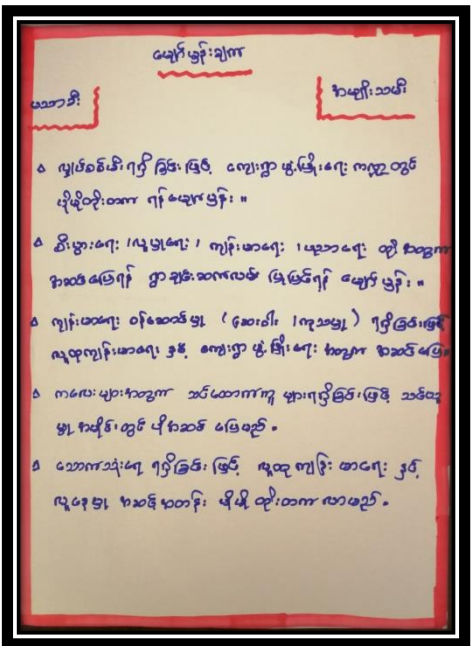 မျှော်မှန်းချက်
ပညာဒီး
အမျိုးသမီး
လျှပ်စစ်မီးရရှိခြင်းဖြင့် ကျေးရွာဖွံ့ဖြိုးရေး ကဏ္ဍတွင်
ပိုမိုတိုးတက် ရန်မျှော်မှန်း။
စီးပွားရေး၊ လူမှုရေး၊ ကျန်းမာရေး၊ ပညာရေး တို့ အတွက်
အဆင်ပြေရန် ရွာချင်းဆက်လမ်း မြှုမြင်ရန် မျှော်မှန်း။
ကျန်းမာရေး ဝန်ဆောင်မှု (ဆေးဝါး၊ ကုသမှု) ရရှိခြင်းဖြင့်
လူထုကျန်းမာရေး နှင့် ကျေးရွာ ဖွံ့ဖြိုးရေး အတွက် အဆင်ပြေ
ကလေးများအတွက် သင်ထောက်ကူ များရရှိခြင်းဖြင့် သင်ယူ
မှု အပိုင်းတွင် ပိုအဆင်ပြေမည်။
သောက်သုံးရေ ရရှိခြင်းဖြင့် လူထုကျန်းမာရေး နှင့်
လူနေမှု အဆင့်အတန်း ပိုမို တိုးတက် လာမည်။